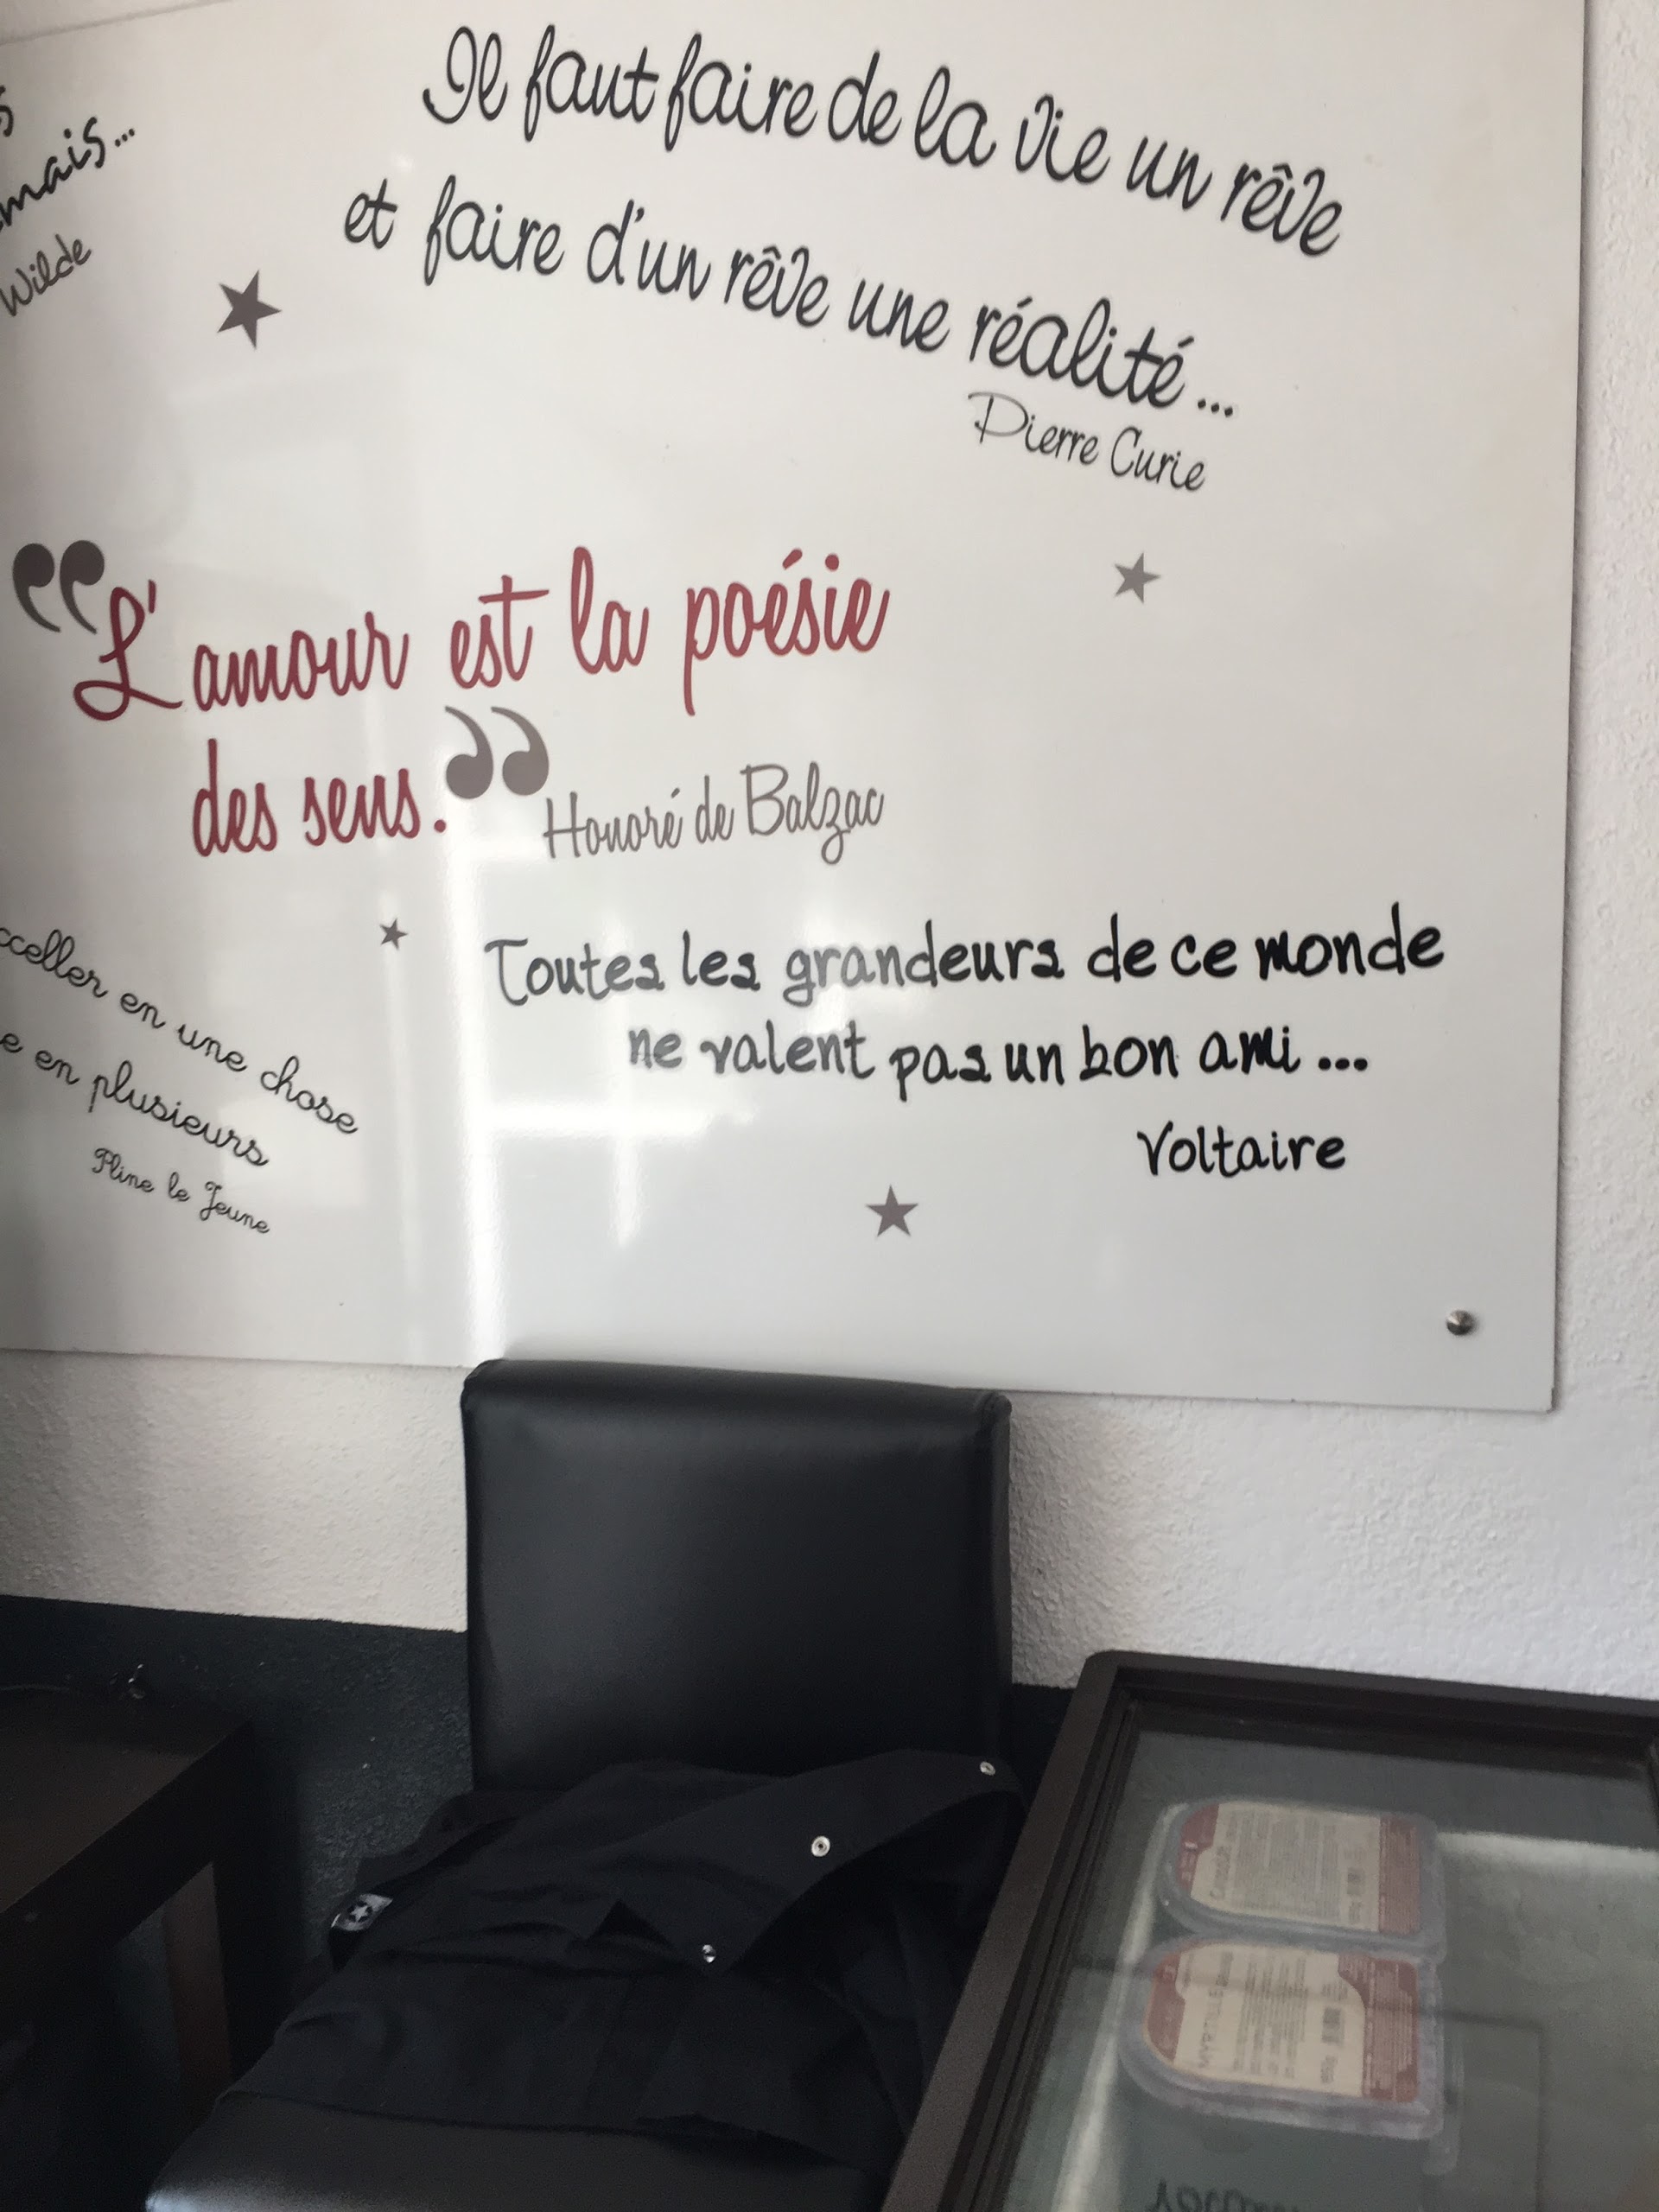 mais...
Wilde
Il faut faire de la vie un rêve
et faire d'un rêve une réalité...
Pierre Curie
“L'amour est la poésie
des sens.”
Honoré de Balzac
en une chose
en plusieurs
Pline le Jeune
Toutes les grandeurs de ce monde
ne valent pas un bon ami...
Voltaire
MYRTILLE